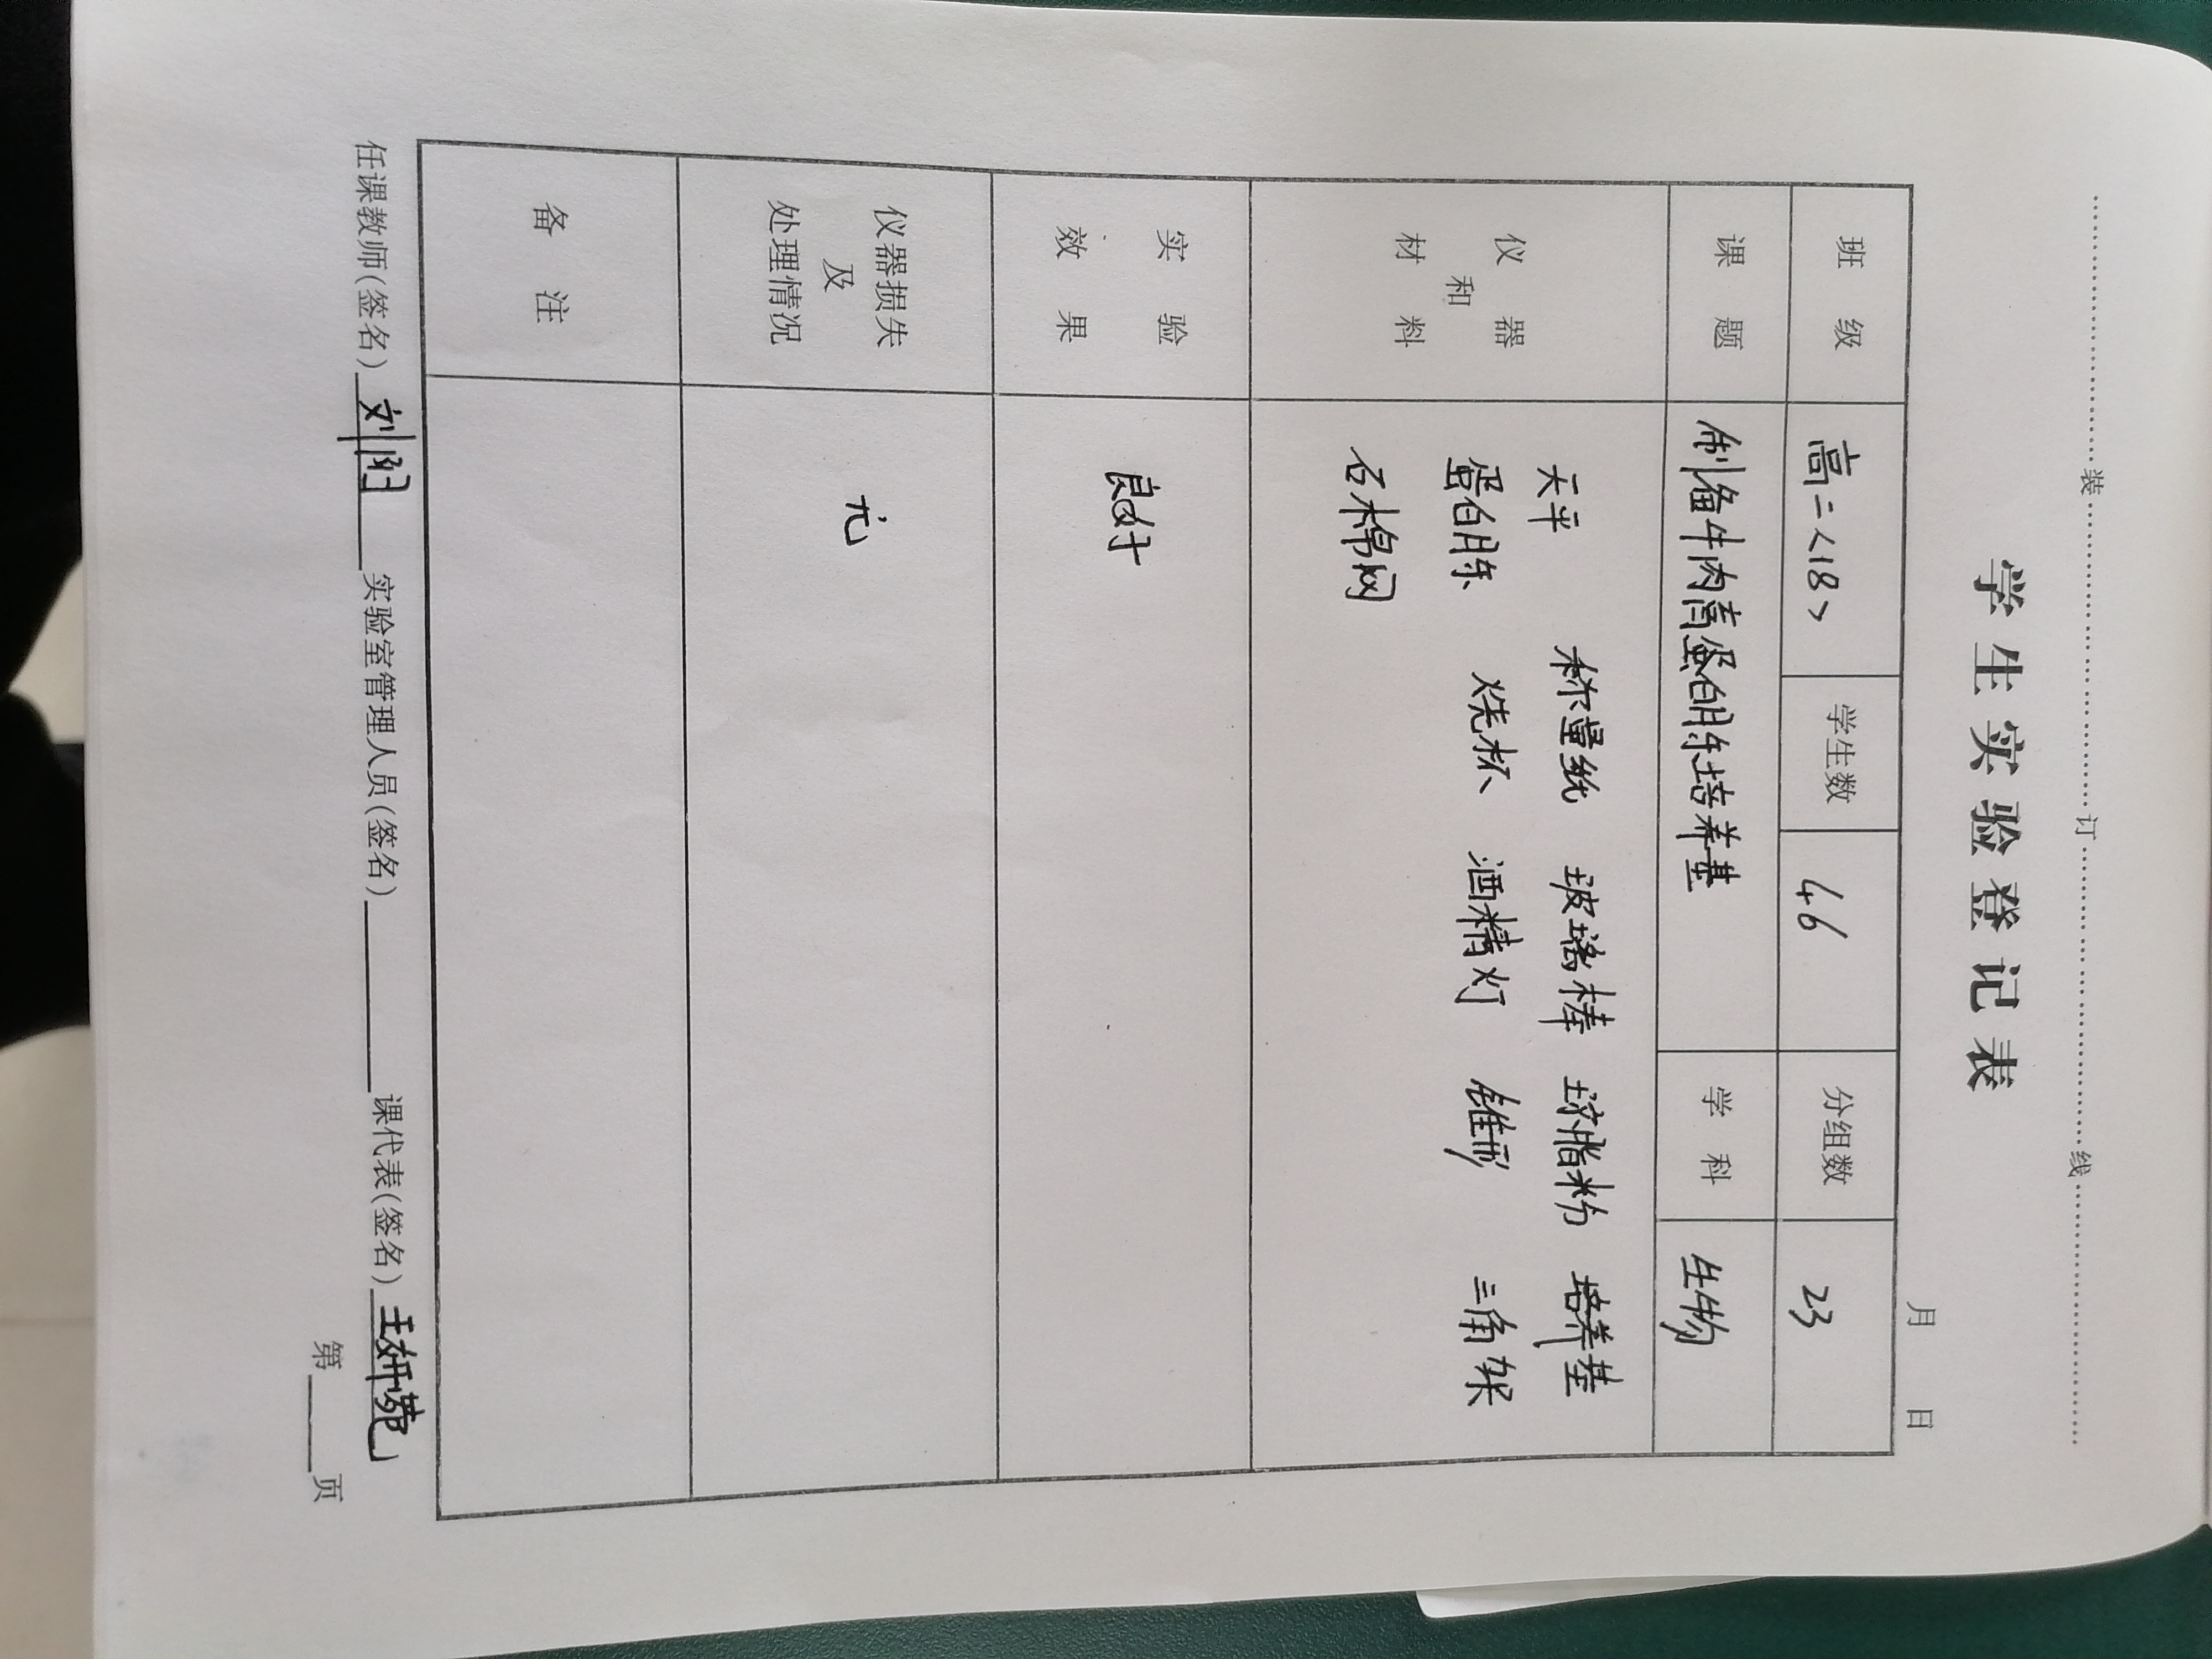 装 订 线
学生实验登记表
月 日
班级 高二<18> 学生数 46 分组数 23
课题 制备牛肉膏蛋白胨培养基 学科 生物
仪器和材料 天平 称量纸 玻璃棒 琼脂粉 培养基
蛋白胨 烧杯 酒精灯 锥形 三角架
石棉网
实验效果 良好
仪器损失及处理情况
备注
任课教师(签名) 刘阳 实验室管理人员(签名) 课代表(签名) 王妍
第 页